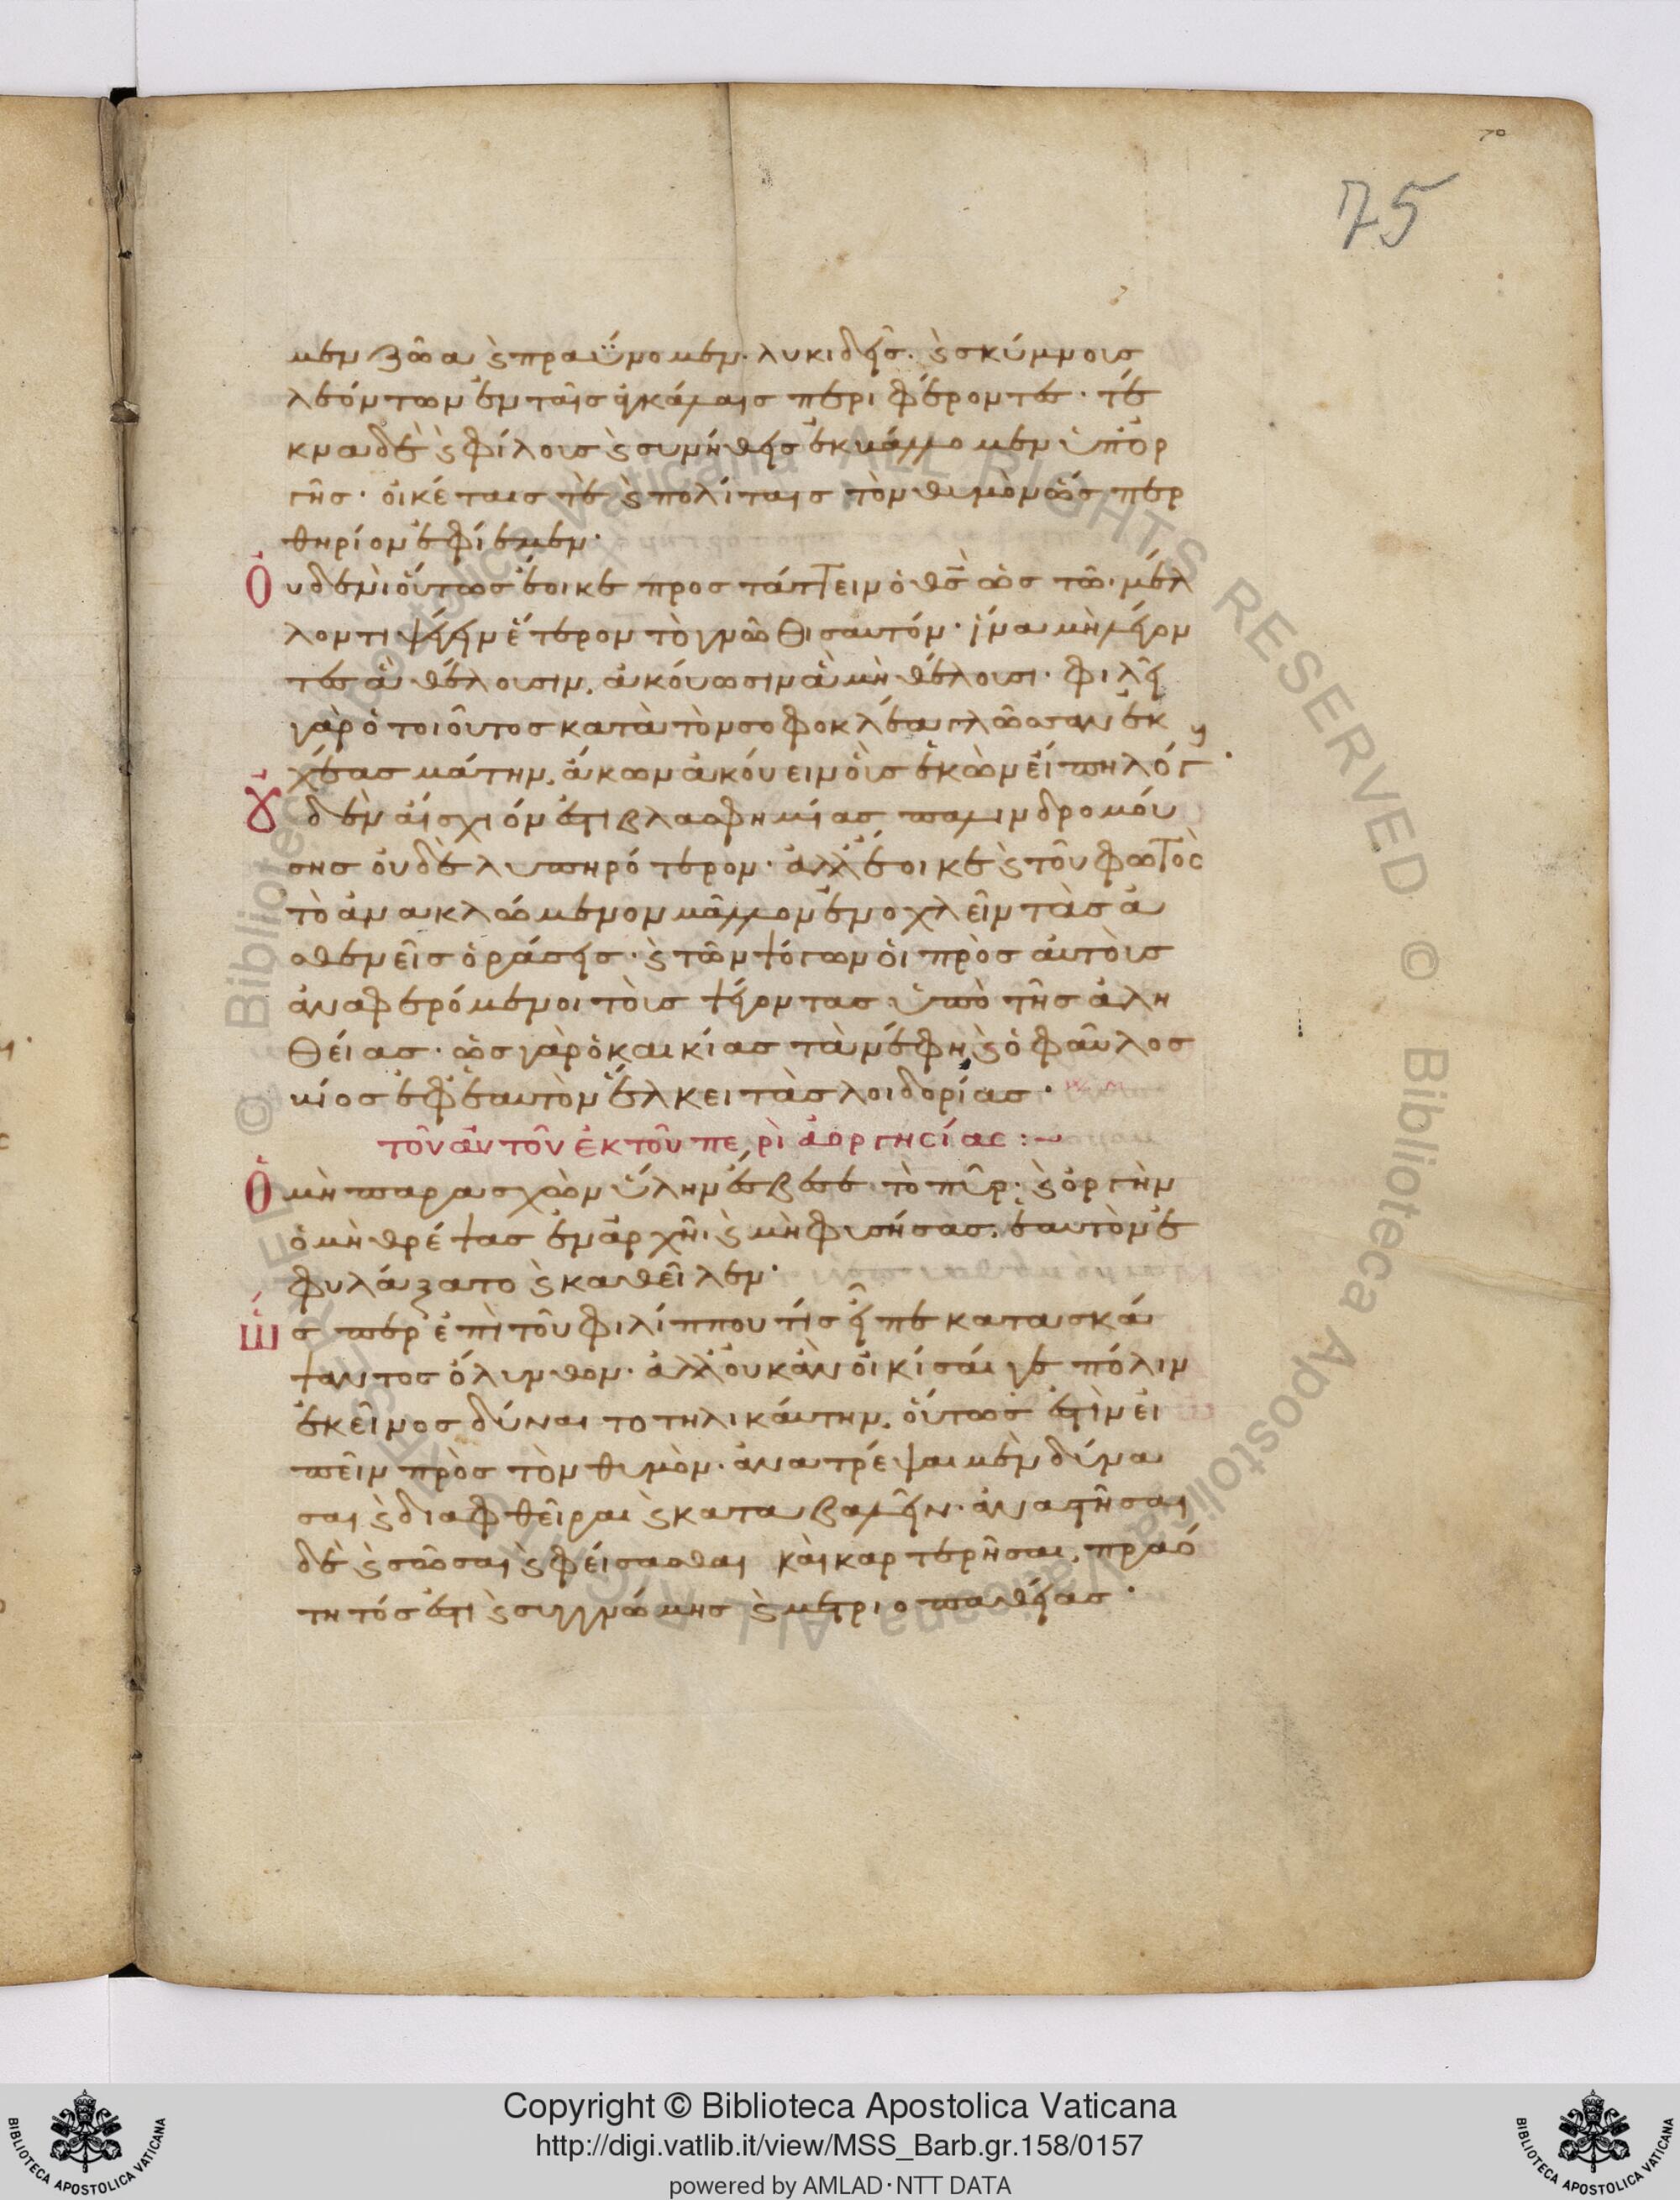 70
75
μεν ζῶα καὶ πραΰνομεν· λυκιδεῖς· καὶ σκύμνους
λεόντων ἐν ταῖς ἀγκάλαις περιφέροντες· τέ
κνα δὲ καὶ φίλους καὶ συνήθεις ἐκβάλλομεν ὑπ' ὀρ
γῆς· οἰκέταις τὲ καὶ πολίταις τὸν θυμὸν ὥσπερ
θηρίον ἐφίεμεν·
Ουδενὶ οὕτως ἔοικε προστάττειν ὁ θς ὡς τῶ μέλ
λοντι ψέγειν ἕτερον τὸ γνῶθι σαυτόν· ἵνα μὴ λέγον
τες ἃ θέλουσιν, ἀκούωσιν ἃ μὴ θέλουσι· φιλεῖ
γὰρ ὁ τοιοῦτος κατὰ τὸν σοφοκλέα γλῶσσαν ἐκ
χέας μάτην, ἄκων ἀκούειν οὓς ἑκὼν εἴπη λόγ
Οὐδὲν αἴσχιόν ἐστι βλασφημίας παλινδρομού
σης οὐδὲ λυπηρότερον· ἀλλ' ἔοικε καὶ τοῦ φωτὸς
τὸ ἀνακλώμενον μᾶλλον ἐνοχλεῖν τὰς ἀ
σθενεῖς ὁράσεις· καὶ τῶν ψόγων οἱ πρὸς αὐτοὺς
ἀναφερόμενοι τοὺς ψέγοντας ὑπὸ τῆς ἀλη
θείας· ὡς γὰρ ὁ καικίας τὰ νέφη καὶ ὁ φαῦλος
βίος ἐφ' ἑαυτὸν ἕλκει τὰς λοιδορίας·
τοῦ αὐτοῦ ἐκ τοῦ περὶ ἀοργησίας :~
Ὁ μὴ παρασχὼν ὕλην ἔσβεσε τὸ πῦρ· καὶ ὀργὴν
ὁ μὴ θρέψας ἐν ἀρχῆ· καὶ μὴ φυσήσας, ἑαυτὸν ἐ
φυλάξατο καὶ καθεῖλεν·
Ὥσπερ ἐπὶ τοῦ φιλίππου τίς εἶπε κατασκά
ψαντος ὄλυνθον· ἀλλ' οὐκ ἂν οἰκίσαι γε πόλιν
ἐκεῖνος δύναιτο τηλικαύτην, οὕτως ἐστὶν εἰ
πεῖν πρὸς τὸν θυμὸν· ἀνατρέψαι μὲν δύνα
σαι καὶ διαφθεῖραι καὶ καταβαλεῖν· ἀναστῆσαι
δὲ καὶ σῶσαι καὶ φείσασθαι καὶ καρτερῆσαι, πραό
τητός ἐστι καὶ συγγνώμης καὶ μετριοπαθείας·
Copyright © Biblioteca Apostolica Vaticana
http://digi.vatlib.it/view/MSS_Barb.gr.158/0157
powered by AMLAD·NTT DATA